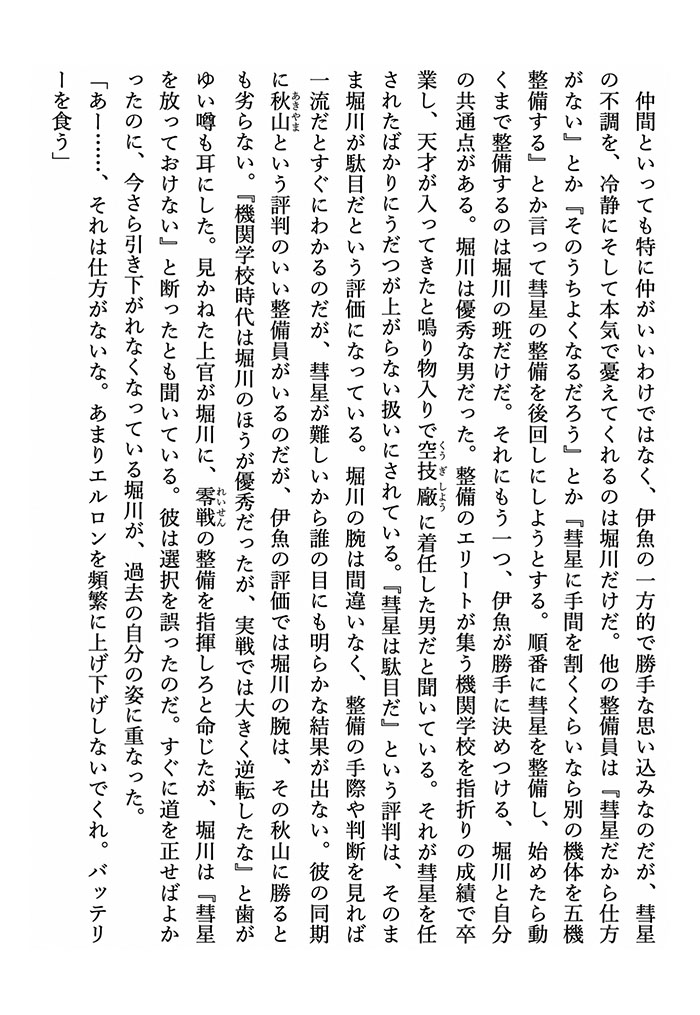 仲間といっても特に仲がいいわけではなく、伊魚の一方的で勝手な思い込みなのだが、彗星
の不調を、冷静にそして本気で憂えてくれるのは堀川だけだ。他の整備員は『彗星だから仕方
がない』とか『そのうちよくなるだろう』とか『彗星に手間を割くくらいなら別の機体を五機
整備する』とか言って彗星の整備を後回しにしようとする。順番に彗星を整備し、始めたら動
くまで整備するのは堀川の班だけだ。それにもう一つ、伊魚が勝手に決めつける、堀川と自分
の共通点がある。堀川は優秀な男だった。整備のエリートが集う機関学校を指折りの成績で卒
業し、天才が入ってきたと鳴り物入りで空技廠に着任した男だと聞いている。それが彗星を任
されたばかりにうだつが上がらない扱いにされている。『彗星は駄目だ』という評判は、そのま
ま堀川が駄目だという評価になっている。堀川の腕は間違いなく、整備の手際や判断を見れば
一流だとすぐにわかるのだが、彗星が難しいから誰の目にも明らかな結果が出ない。彼の同期
に秋山という評判のいい整備員がいるのだが、伊魚の評価では堀川の腕は、その秋山に勝ると
も劣らない。『機関学校時代は堀川のほうが優秀だったが、実戦では大きく逆転したな』と歯が
ゆい噂も耳にした。見かねた上官が堀川に、零戦の整備を指揮しろと命じたが、堀川は『彗星
を放っておけない』と断ったとも聞いている。彼は選択を誤ったのだ。すぐに道を正せばよか
ったのに、今さら引き下がれなくなっている堀川が、過去の自分の姿に重なった。
「あー……、それは仕方がないな。あまりエルロンを頻繁に上げ下げしないでくれ。バッテリ
ーを食う」